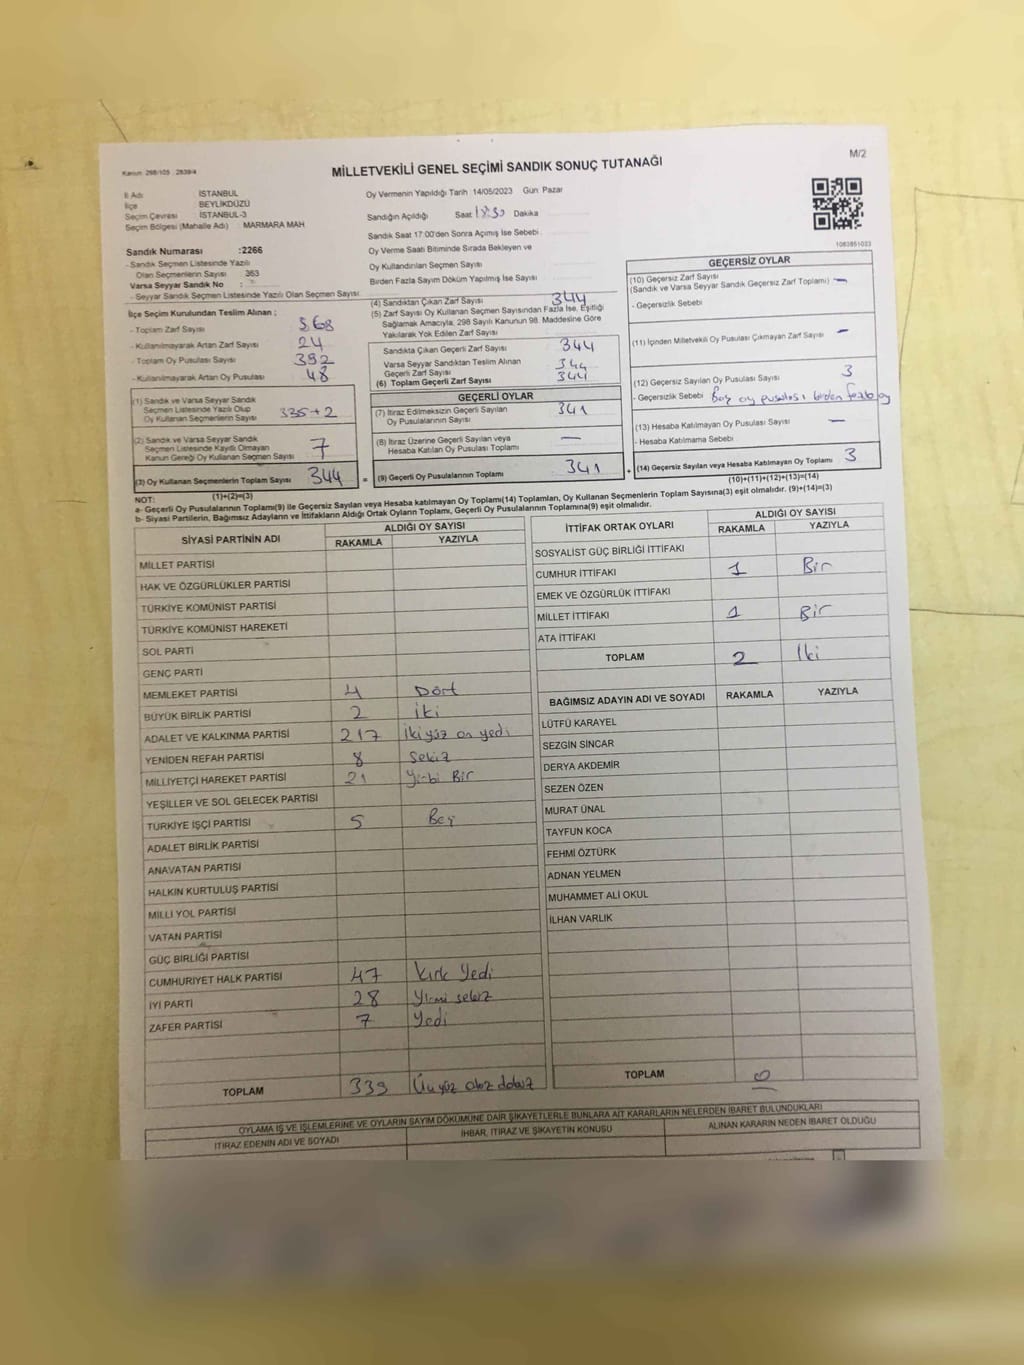 M/2
Kanun 298/105 2839/4
MİLLETVEKİLİ GENEL SEÇİMİ SANDIK SONUÇ TUTANAĞI
İl Adı İSTANBUL
İlçe BEYLİKDÜZÜ
Seçim Çevresi İSTANBUL-3
Seçim Bölgesi (Mahalle Adı) MARMARA MAH
Sandık Numarası :2266
- Sandık Seçmen Listesinde Yazılı
Olan Seçmenlerin Sayısı 363
Varsa Seyyar Sandık No :
- Seyyar Sandık Seçmen Listesinde Yazılı Olan Seçmen Sayısı
Oy Vermenin Yapıldığı Tarih 14/05/2023 Gün Pazar
Sandığın Açıldığı Saat Dakika
Sandık Saat 17:00'den Sonra Açımış İse Sebebi
Oy Verme Saati Bitiminde Sırada Bekleyen ve
Oy Kullandırılan Seçmen Sayısı
Birden Fazla Sayım Döküm Yapılmış İse Sayısı
1083851023
İlçe Seçim Kurulundan Teslim Alınan ;
- Toplam Zarf Sayısı 368
- Kullanılmayarak Artan Zarf Sayısı 24
- Toplam Oy Pusulası Sayısı 392
- Kullanılmayarak Artan Oy Pusulası 48
(1) Sandık ve Varsa Seyyar Sandık
Seçmen Listesinde Yazılı Olup
Oy Kullanan Seçmenlerin Sayısı 335+2
(2) Sandık ve Varsa Seyyar Sandık
Seçmen Listesinde Kayıtlı Olmayan
Kanun Gereği Oy Kullanan Seçmen Sayısı 7
(3) Oy Kullanan Seçmenlerin Toplam Sayısı 344
(1)+(2)=(3)
(4) Sandıktan Çıkan Zarf Sayısı 344
(5) Zarf Sayısı Oy Kullanan Seçmen Sayısından Fazla İse, Eşitliği
Sağlamak Amacıyla, 298 Sayılı Kanunun 98. Maddesine Göre
Yakılarak Yok Edilen Zarf Sayısı
Sandıkta Çıkan Geçerli Zarf Sayısı 344
Varsa Seyyar Sandıktan Teslim Alınan
Geçerli Zarf Sayısı 344
(6) Toplam Geçerli Zarf Sayısı 344
GEÇERLİ OYLAR
(7) İtiraz Edilmeksizin Geçerli Sayılan
Oy Pusulalarının Sayısı 341
(8) İtiraz Üzerine Geçerli Sayılan veya
Hesaba Katılan Oy Pusulası Toplamı —
= (9) Geçerli Oy Pusulalarının Toplamı 341
GEÇERSİZ OYLAR
(10) Geçersiz Zarf Sayısı
(Sandık ve Varsa Seyyar Sandık Geçersiz Zarf Toplamı) —
- Geçersizlik Sebebi
(11) İçinden Milletvekili Oy Pusulası Çıkmayan Zarf Sayısı —
(12) Geçersiz Sayılan Oy Pusulası Sayısı 3
- Geçersizlik Sebebi Boş oy pusulası birden fazla oy
(13) Hesaba Katılmayan Oy Pusulası Sayısı —
- Hesaba Katılmama Sebebi
+ (14) Geçersiz Sayılan veya Hesaba Katılmayan Oy Toplamı 3
(10)+(11)+(12)+(13)=(14)
NOT:
a- Geçerli Oy Pusulalarının Toplamı(9) ile Geçersiz Sayılan veya Hesaba katılmayan Oy Toplamı(14) Toplamları, Oy Kullanan Seçmenlerin Toplam Sayısına(3) eşit olmalıdır. (9)+(14)=(3)
b- Siyasi Partilerin, Bağımsız Adayların ve İttifakların Aldığı Ortak Oyların Toplamı, Geçerli Oy Pusulalarının Toplamına(9) eşit olmalıdır.
SİYASİ PARTİNİN ADI ALDIĞI OY SAYISI
RAKAMLA YAZIYLA
MİLLET PARTİSİ
HAK VE ÖZGÜRLÜKLER PARTİSİ
TÜRKİYE KOMÜNİST PARTİSİ
TÜRKİYE KOMÜNİST HAREKETİ
SOL PARTİ
GENÇ PARTİ
MEMLEKET PARTİSİ 4 Dört
BÜYÜK BİRLİK PARTİSİ 2 iki
ADALET VE KALKINMA PARTİSİ 217 ikiyüz on yedi
YENİDEN REFAH PARTİSİ 8 sekiz
MİLLİYETÇİ HAREKET PARTİSİ 21 Bir
YEŞİLLER VE SOL GELECEK PARTİSİ
TÜRKİYE İŞÇİ PARTİSİ 5 Beş
ADALET BİRLİK PARTİSİ
ANAVATAN PARTİSİ
HALKIN KURTULUŞ PARTİSİ
MİLLİ YOL PARTİSİ
VATAN PARTİSİ
GÜÇ BİRLİĞİ PARTİSİ
CUMHURİYET HALK PARTİSİ 47 Kırk Yedi
İYİ PARTİ 28 Yirmi sekiz
ZAFER PARTİSİ 7 Yedi
TOPLAM 339 Üçyüz otuz dokuz
İTTİFAK ORTAK OYLARI ALDIĞI OY SAYISI
RAKAMLA YAZIYLA
SOSYALİST GÜÇ BİRLİĞİ İTTİFAKI
CUMHUR İTTİFAKI 1 Bir
EMEK VE ÖZGÜRLÜK İTTİFAKI
MİLLET İTTİFAKI 1 Bir
ATA İTTİFAKI
TOPLAM 2 İki
BAĞIMSIZ ADAYIN ADI VE SOYADI RAKAMLA YAZIYLA
LÜTFÜ KARAYEL
SEZGİN SİNCAR
DERYA AKDEMİR
SEZEN ÖZEN
MURAT ÜNAL
TAYFUN KOCA
FEHMİ ÖZTÜRK
ADNAN YELMEN
MUHAMMET ALİ OKUL
İLHAN VARLIK
TOPLAM 0
OYLAMA İŞ VE İŞLEMLERİNE VE OYLARIN SAYIM DÖKÜMÜNE DAİR ŞİKAYETLERLE BUNLARA AİT KARARLARIN NELERDEN İBARET BULUNDUKLARI
İTİRAZ EDENİN ADI VE SOYADI İHBAR, İTİRAZ VE ŞİKAYETİN KONUSU ALINAN KARARIN NEDEN İBARET OLDUĞU